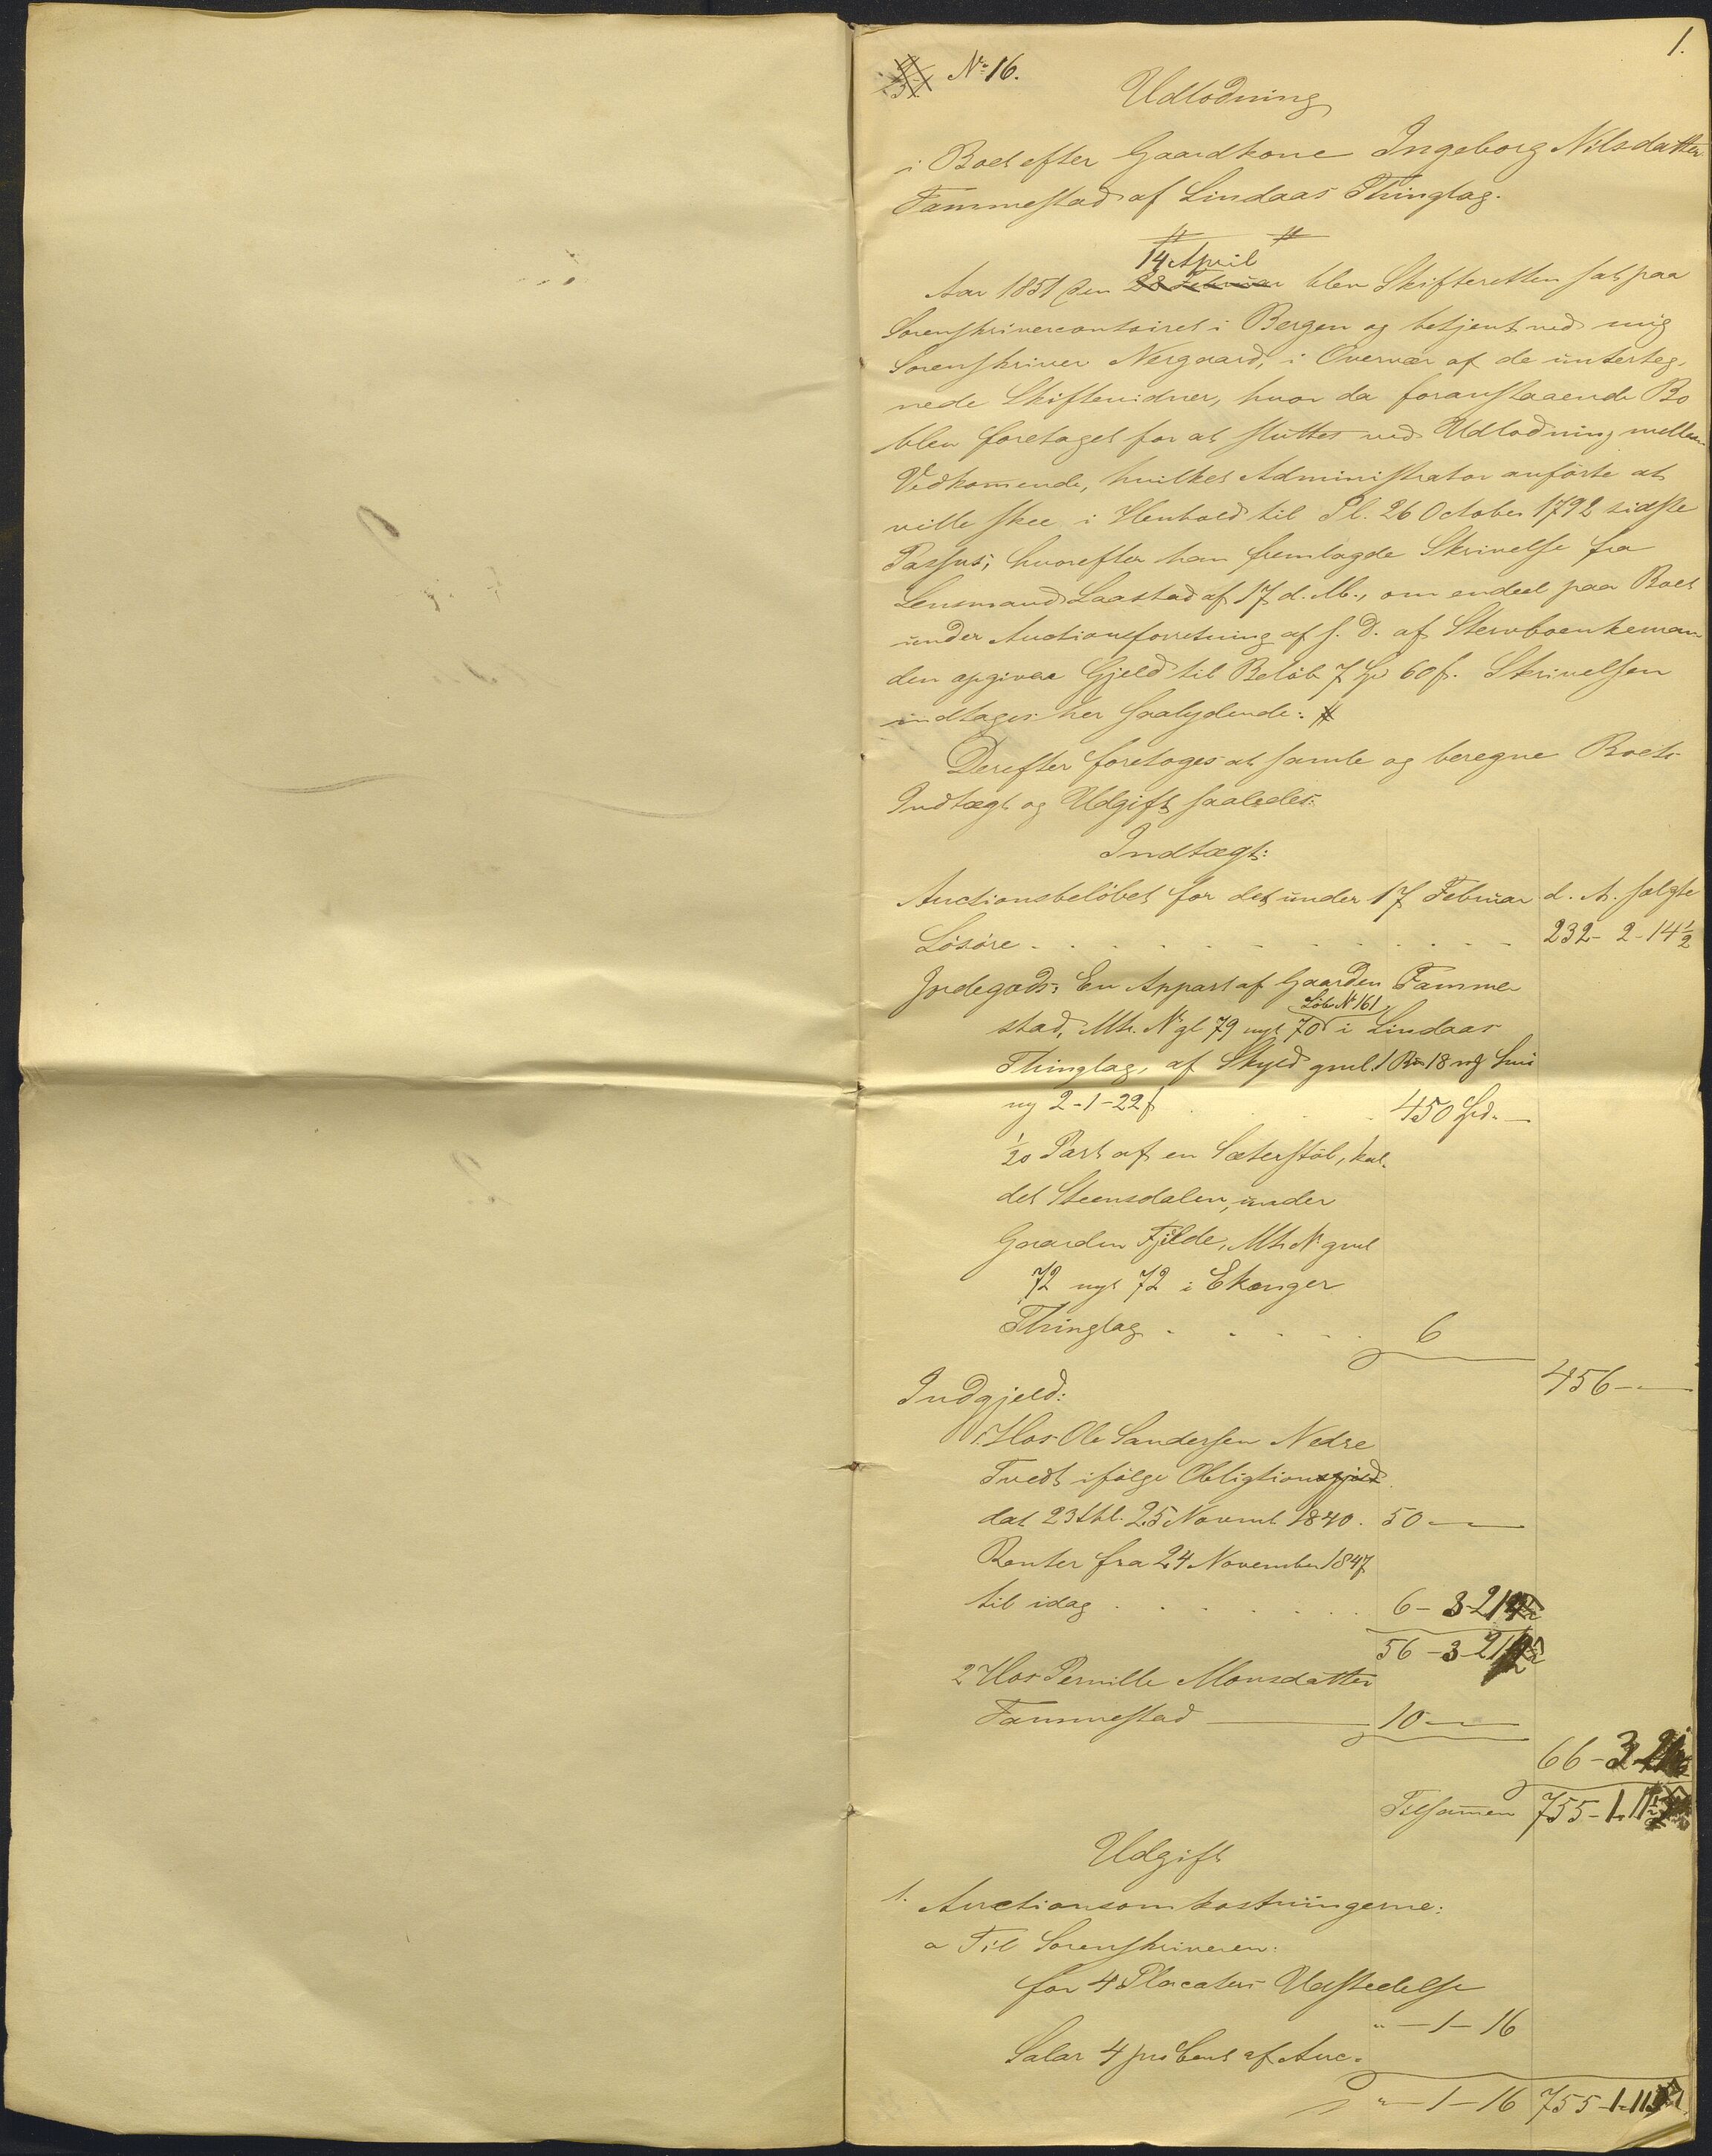 1.
No 16.
Udlodning
i Boet efter Gaardkone Ingeborg Nilsdatter
Fammestad af Lindaas Thinglag.
14 April
Aar 1851 den 28 Februar blev Skifteretten sat paa
Sorenskrivercontoiret i Bergen og betjent ved mig
Sorenskriver Nergaard, i Overvær af de unterteg-
nede Skiftevidner, hvor da foranstaaende Bo
blev foretaget for at sluttes ved Udlodning mellem
Vedkomende, hvilket Administrator anførte at
ville skee i Henhold til Pl. 26 October 1792 sidste
Passus; hvorefter han fremlagde Skrivelse fra
Lensmand Laastad af 17 d. M., om endeel paa Boet
under Auctionsforretning af s. D. af Stervboenkeman-
den opgiven Gjeld til Beløb 7 Spd 60 s. Skrivelsen
indtages her saalydende:
Derefter foretoges at samle og beregne Boets
Indtægt og Udgift saaledes:
Indtægt:
Auctionsbeløbet for det under 17 Februar d. A. solgte
Løsøre - 232 - 2 - 14½
Jordegods: En Appart af Gaarden Famme-
Løb No 161
stad, Mtr. No gl 79 nyt 70 i Lindaas
Thinglag, af Skyld gml. 1 18 Smø
ny 2-1-22 s 450 Spd. —
1/20 Part af en Sæterstøl, kal-
det Steensdalen, under
Gaarden Fjelde, Mtr. No gml
72 nyt 72 i Ekanger
Thinglag - 6
456 —
Indgjeld:
1. Hos Ole Sandersen Nedre
Tvedt ifølge Obligtionsgjeld
dat 23 thl. 25 Novemb 1840. 50 —
Renter fra 24 November 1847
til idag 6 - 3 - 21
56 - 3 - 21
2 Hos Pernille Monsdatter
Fammestad — 10 —
66 - 3 - 21
Tilsamen 755 - 1 - 11½
Udgift
1. Auctionsomkostningerne:
a Til Sorenskriveren:
for 4 Placaters Udstedelse
" - 1 - 16
Salar 4 pro Cent af Auc-
" - 1 - 16 755 - 1 - 11½